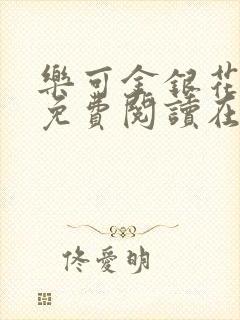 樂可金銀花
免費閱讀在
佟愛明